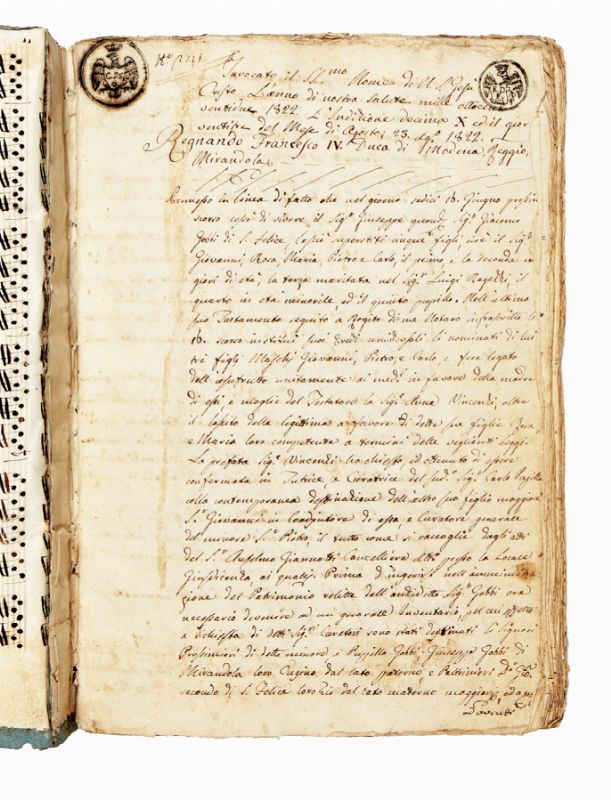 Invocato il SS.mo Nome di N. S. Gesù
Cristo. L'anno di nostra Salute mille ottocento
ventidue 1822. Indizione decima X ed il giorno
ventitre del Mese di Agosto, 23. do 1822.
Regnando Francesco IV. Duca di Modena, Reggio,
Mirandola.
Premesso in linea di fatto che nel giorno sedici 16. Giugno prossimo
scorso cessò di vivere il Sig.r Giuseppe quond. Sig.r Giacomo
Gobbi di S. Felice, superstiti cinque figli, cioè il Sig.r
Giovanni, Rosa, Maria, Pietro e Carlo, il primo e la seconda mag-
giori di età, la terza maritata nel Sig.r Luigi Ragazzi, il
quarto in età minorile ed il quinto pupillo. Nell'ultimo
suo Testamento seguito a Rogito di me Notaro infrascritto li
16. scorso instituì suoi Eredi universali li nominati di lui
tre figli Maschi Giovanni, Pietro, e Carlo e fece legato
dell'usufrutto unitamente ai medi in favore della madre
di essi e moglie del Testatore la Sig.a Anna Vincenzi, oltre
il lascito della legittima a favore di dette sue figlie Rosa
e Maria loro competente a termini delle veglianti Leggi.
La prefata Sig.a Vincenzi ha chiesto, ed ottenuto di essere
confermata in Tutrice, e Curatrice del sud.o Sig.r Carlo Pupillo
colla contemporanea destinazione dell'altro suo figlio maggiore
S.r Giovanni in Coadjutore di essa, e Curatore generale
del minore S.r Pietro, il tutto come si raccoglie dagli atti
del S.r Anselmo Giannotti Cancelliere presso la Locale
Giusdicenza, ai quali. Prima d'ingerirsi nell'amministra
zione del Patrimonio relitto dall'anzidetto Sig.r Gobbi ora
necessario devenire ad un generale Inventario, pel cui effetto
a richiesta di detti Sig.ri Curatori sono stati destinati li Signori
Prossimiori di detto minore e Pupillo Gobbi, Giuseppe Gobbi di
Mirandola loro Cugino dal lato paterno, e Peltrinieri
secondo di S. Felice loro Zio dal lato materno maggiori, ed